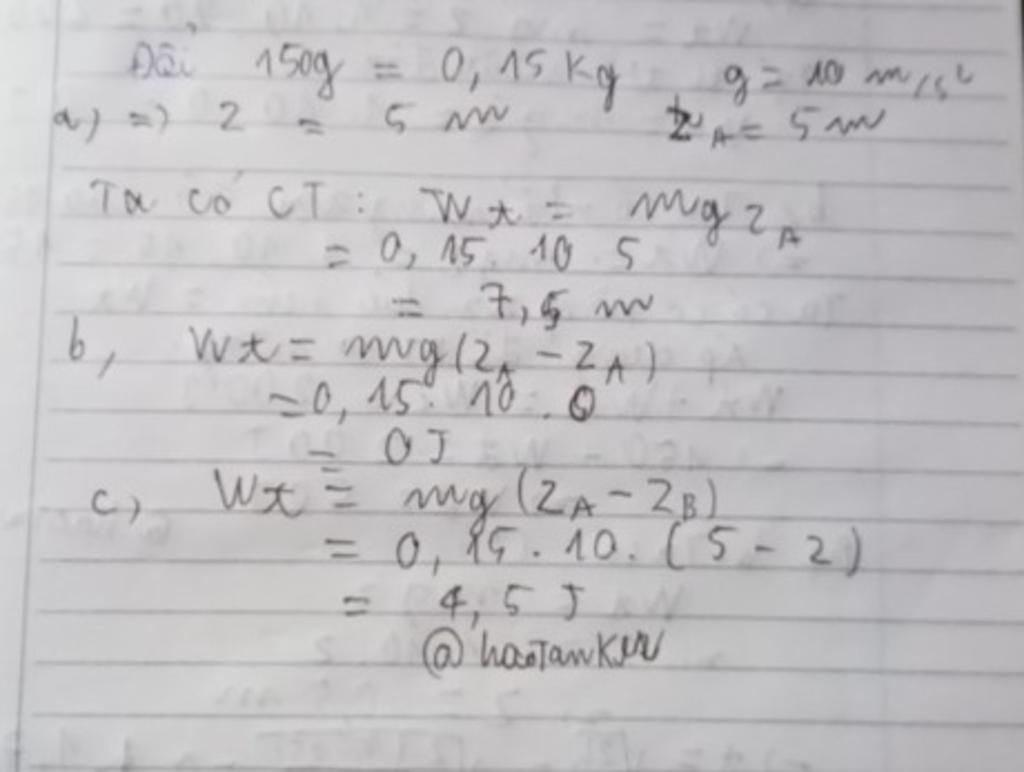 Đổi 150g = 0,15 Kg g = 10 m/s²
a) => z = 5 m z_A = 5 m
Ta có CT: Wt = mg z_A
= 0,15. 10 5
= 7,5 m
b, Wt = mg(z_A - z_A)
= 0,15. 10. 0
= 0J
c, Wt = mg (z_A - z_B)
= 0,15. 10. (5 - 2)
= 4,5 J